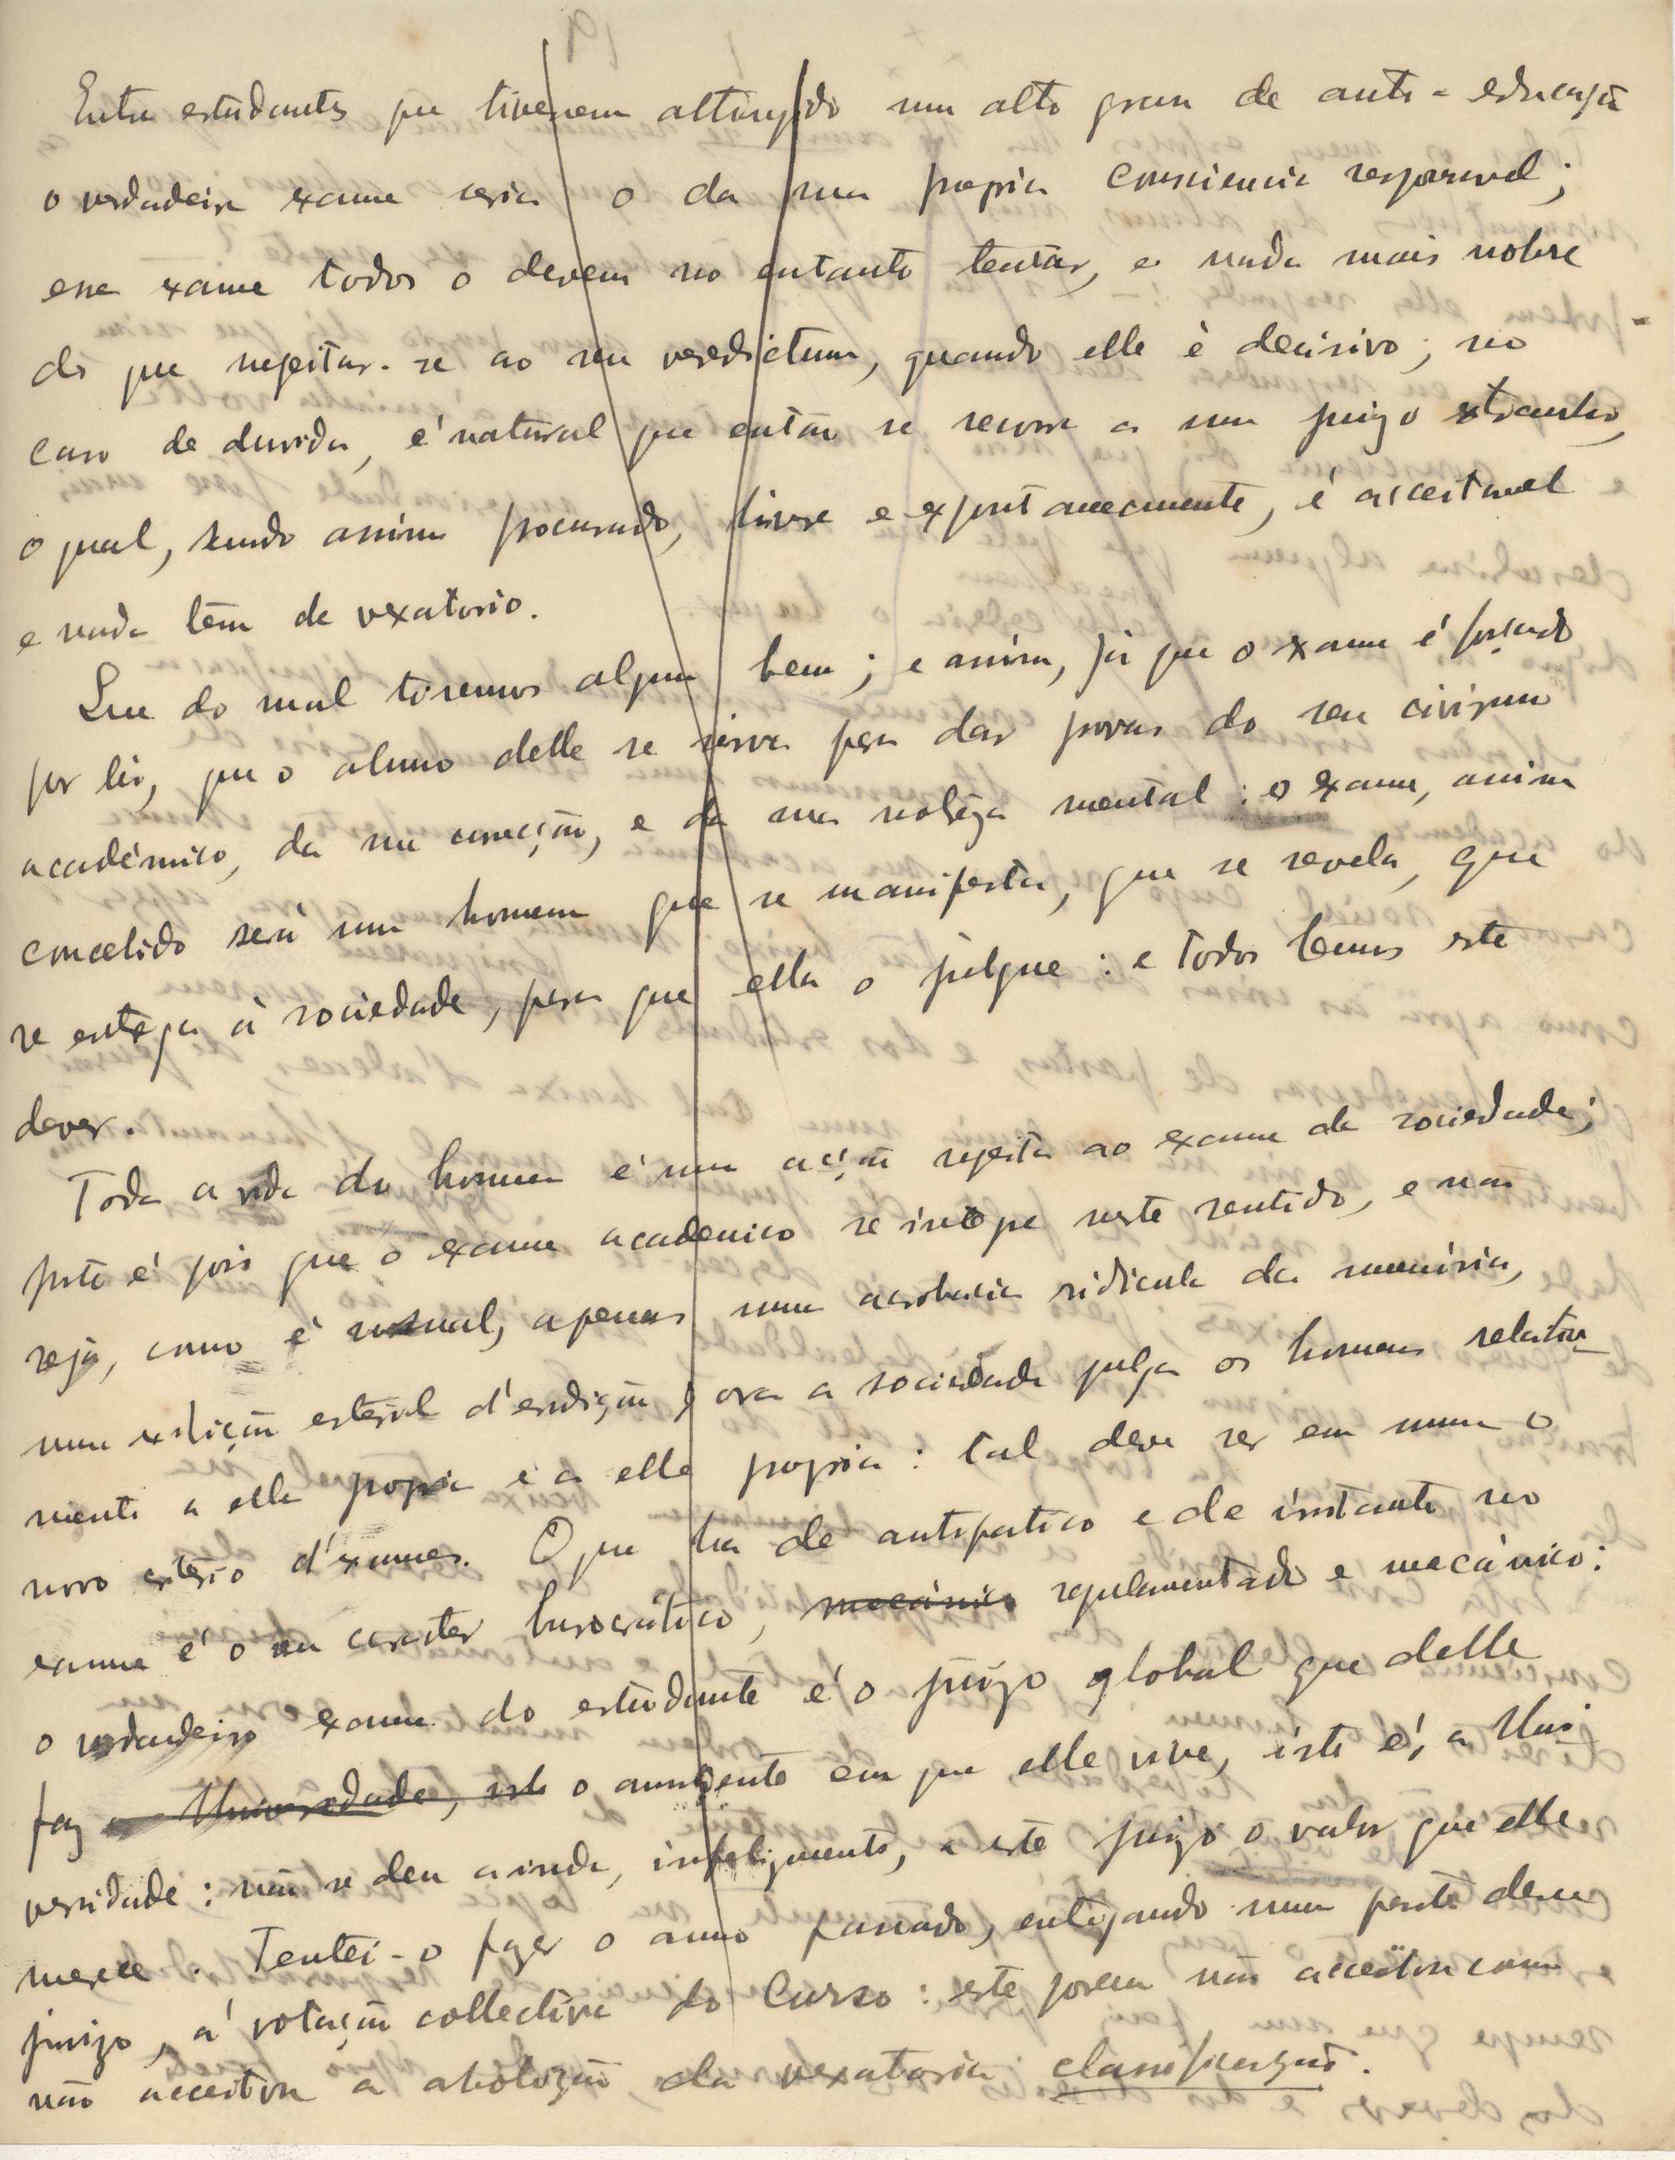 Entre estudantes que tivessem attingido um alto grau de auto-educação
o verdadeiro exame seria o da sua propria consciencia responsavel;
esse exame todos o devem no entanto tentar, e nada mais nobre
do que sujeitar-se ao seu veredictum, quando elle é decisivo; no
caso de duvida, é natural que então se recorra a um juizo extranho,
o qual, sendo assim procurado, livre e expontaneamente, é acceitavel
e nada tem de vexatorio.
Que do mal tiremos algum bem; e assim, já que o exame é forçado
por lei, que o alumno delle se sirva para dar provas do seu civismo
académico, da sua correcção, e da sua nobreza mental: o exame, assim
concebido será um homem que se manifesta, que se revela, que
se entrega á sociedade, para que ella o julgue: e todos temos este
dever.
Toda a vida do homem é uma acção sujeita ao exame da sociedade;
justo é pois que o exame academico se integre neste sentido, e não
seja, como é usual, apenas uma acrobacia ridicula da memória,
uma exibição esteril d'erudição; ora a sociedade julga os homens relativa-
mente a ella propria e a elle proprio: tal deve ser em summa o
novo critério d'exames. O que ha de antipatico e de irritante no
exame é o seu caracter burocrático, ~~mecánico~~ regulamentado e mecánico:
o verdadeiro exame do estudante é o juizo global que delle
faz ~~a Universidade, isto~~ o ambiente em que elle vive, isto é, a Uni-
versidade: não se deu ainda, infelizmente, a este juizo o valor que elle
merece. Tentei-o fazer o anno passado, entregando uma parte desse
juizo, á votação collectiva do Curso: este porem não acceitou como
não acceitou a abolição da vexatoria classificação.